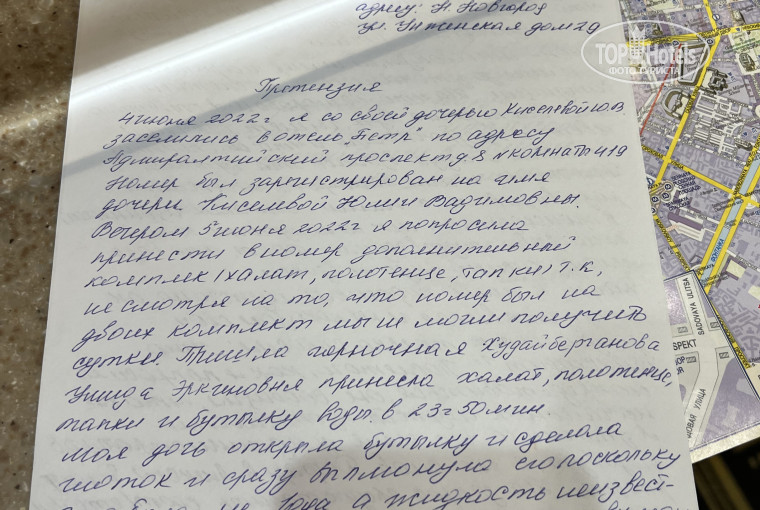 адресу: Н. Новгород
ул. Унженская дом 29
Претензия
4 июня 2022г я со своей дочерью Киселевой Ю.В.
заселились в отель "Петр" по адресу
Адмиралтийский проспект д. 8 № комнаты 419
Номер был зарегистрирован на имя
дочери Киселевой Юлии Вадимовны.
Вечером 5 июня 2022г я попросила
принести в номер дополнительный
комплек (халат, полотенце, тапки) т.к,
не смотря на то, что номер был на
двоих комплект мы не могли получить
сутки. Пришла горночная Худайберганова
Улида Эркиновня принесла халат, полотенце,
тапки и бутылку воды в 23г50мин.
моя дочь открыла бутылку и сделала
глоток и сразу выплюнула поскольку
вода а жидкость неизвест-
TOP Hotels
ФОТО ТУРИСТА
SADOVAYA ULITSA